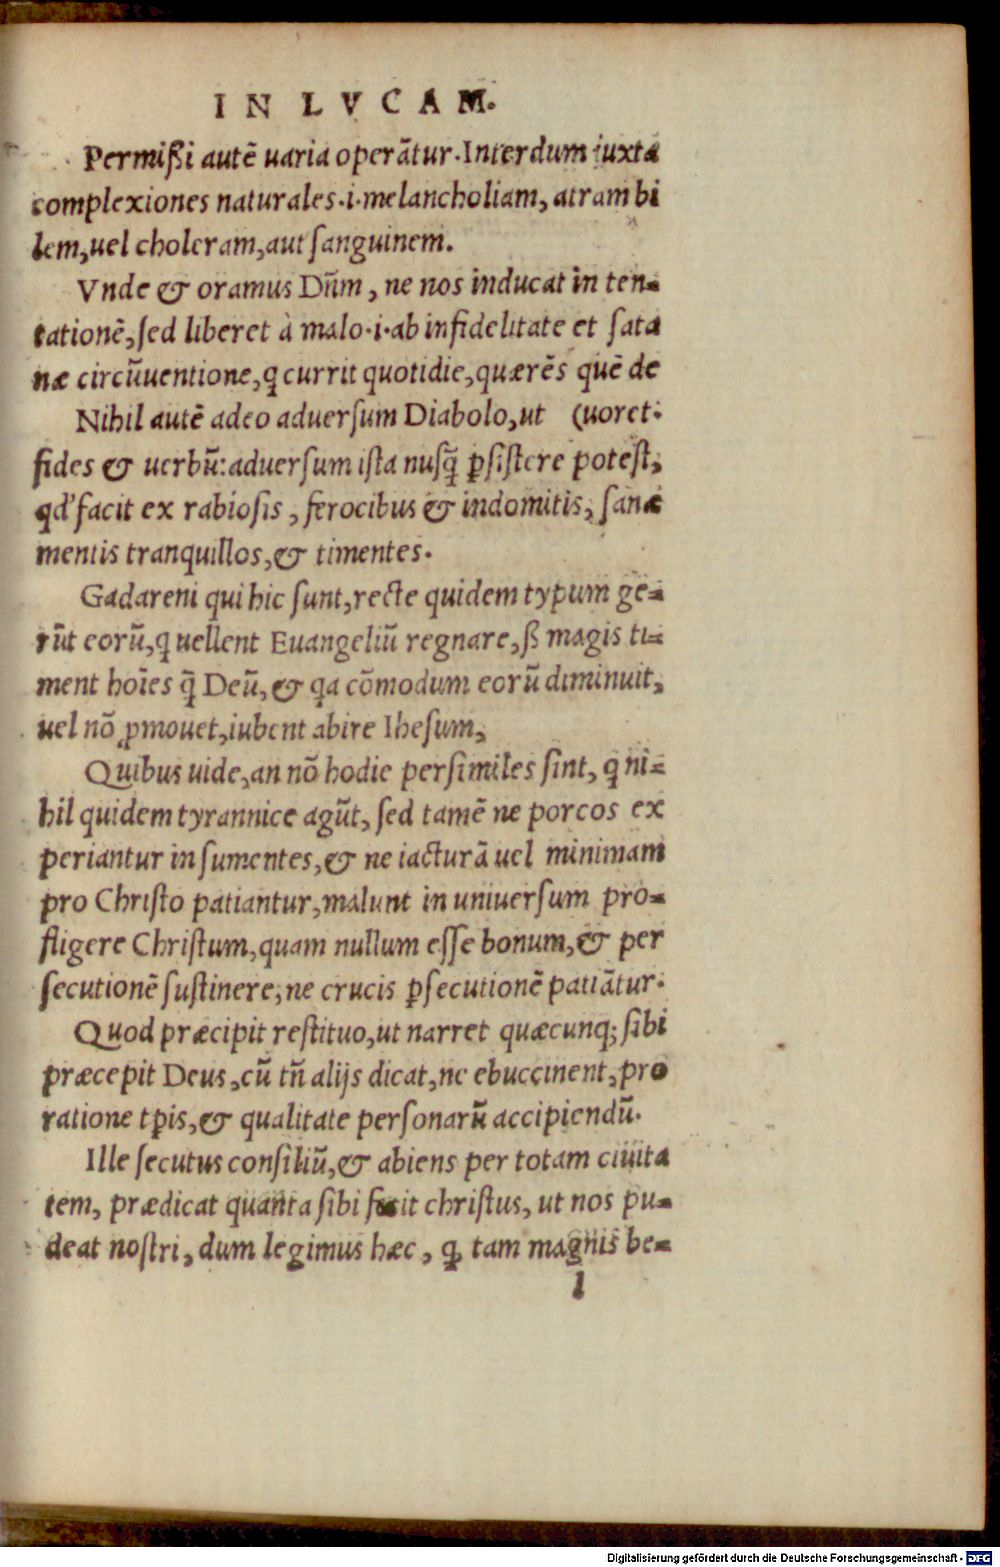 IN LVCAM.
Permißi autē uaria operātur. Interdum iuxta
complexiones naturales .i. melancholiam, atram bi
lem, uel choleram, aut sanguinem.
Vnde & oramus Dn̄m, ne nos inducat in ten-
tationē, sed liberet à malo .i. ab infidelitate et sata
næ circūuentione, q currit quotidie, quærēs quē de
Nihil autē adeo aduersum Diabolo, ut (uoret.
fides & uerbū: aduersum ista nusq̄ ꝑsistere potest,
qd' facit ex rabiosis, ferocibus & indomitis, sanæ
mentis tranquillos, & timentes.
Gadareni qui hic sunt, recte quidem typum ge-
rūt eorū, q uellent Euangeliū regnare, ß magis ti-
ment hoīes q̄ Deū, & qa cōmodum eorū diminuit,
uel nō ꝓmouet, iubent abire Ihesum,
Quibus uide, an nō hodie persimiles sint, q ni-
hil quidem tyrannice agūt, sed tamē ne porcos ex
periantur insumentes, & ne iacturā uel minimam
pro Christo patiantur, malunt in uniuersum pro-
fligere Christum, quam nullum esse bonum, & per
secutionē sustinere, ne crucis ꝑsecutionē patiātur.
Quod præcipit restituo, ut narret quæcunq; sibi
præcepit Deus, cū tn̄ alijs dicat, ne ebuccinent, pro
ratione tꝑis, & qualitate personarū accipiendū.
Ille secutus consiliū, & abiens per totam ciuita
tem, prædicat quanta sibi fecit christus, ut nos pu-
deat nostri, dum legimus hæc, ꝙ tam magnis be-
l
Digitalisierung gefördert durch die Deutsche Forschungsgemeinschaft - DFG